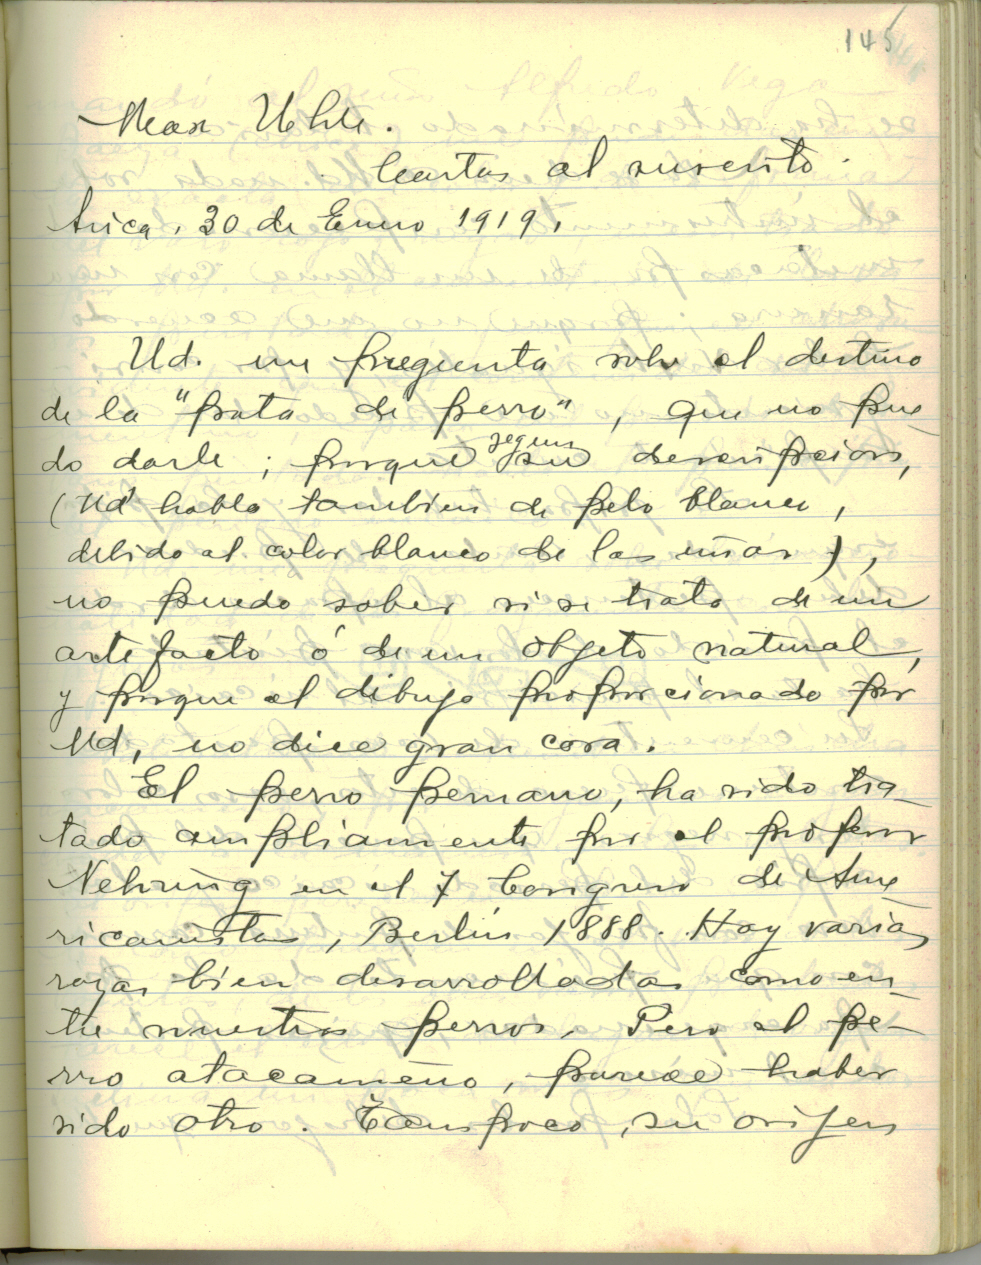 145
Max Uhle.
Cartas al suscrito.
Arica, 30 de Enero 1919.
Ud. me pregunta sobre el destino
de la "pata de perro", que no pue
do darle; porque segun su descripcion,
(Ud habla tambien de pelo blanco,
debido al color blanco de las uñas),
no puedo saber si se trata de un
artefacto ó de un objeto natural,
y porque el dibujo proporcionado por
Ud, no dice gran cosa.
El perro peruano, ha sido tra-
tado ampliamente por el profesor
Nehring en el 7 Congreso de Ame
ricanistas, Berlin 1888. Hay varias
razas bien desarrolladas como en-
tre nuestros perros. Pero el pe-
rro atacameño, parece haber
sido otro. Tampoco, su orijen